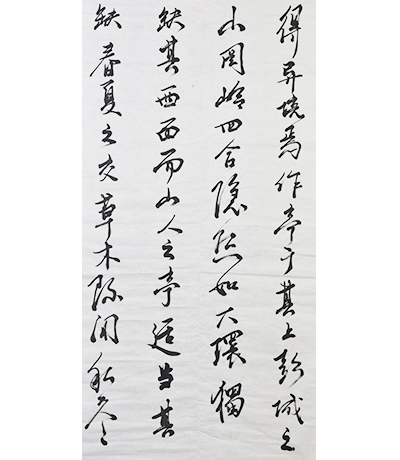 得异境焉作亭于其上彭城之
山岡岭四合隐然如大環獨
缺其西面而山人之亭适当其
缺春夏之交草木际秋冬